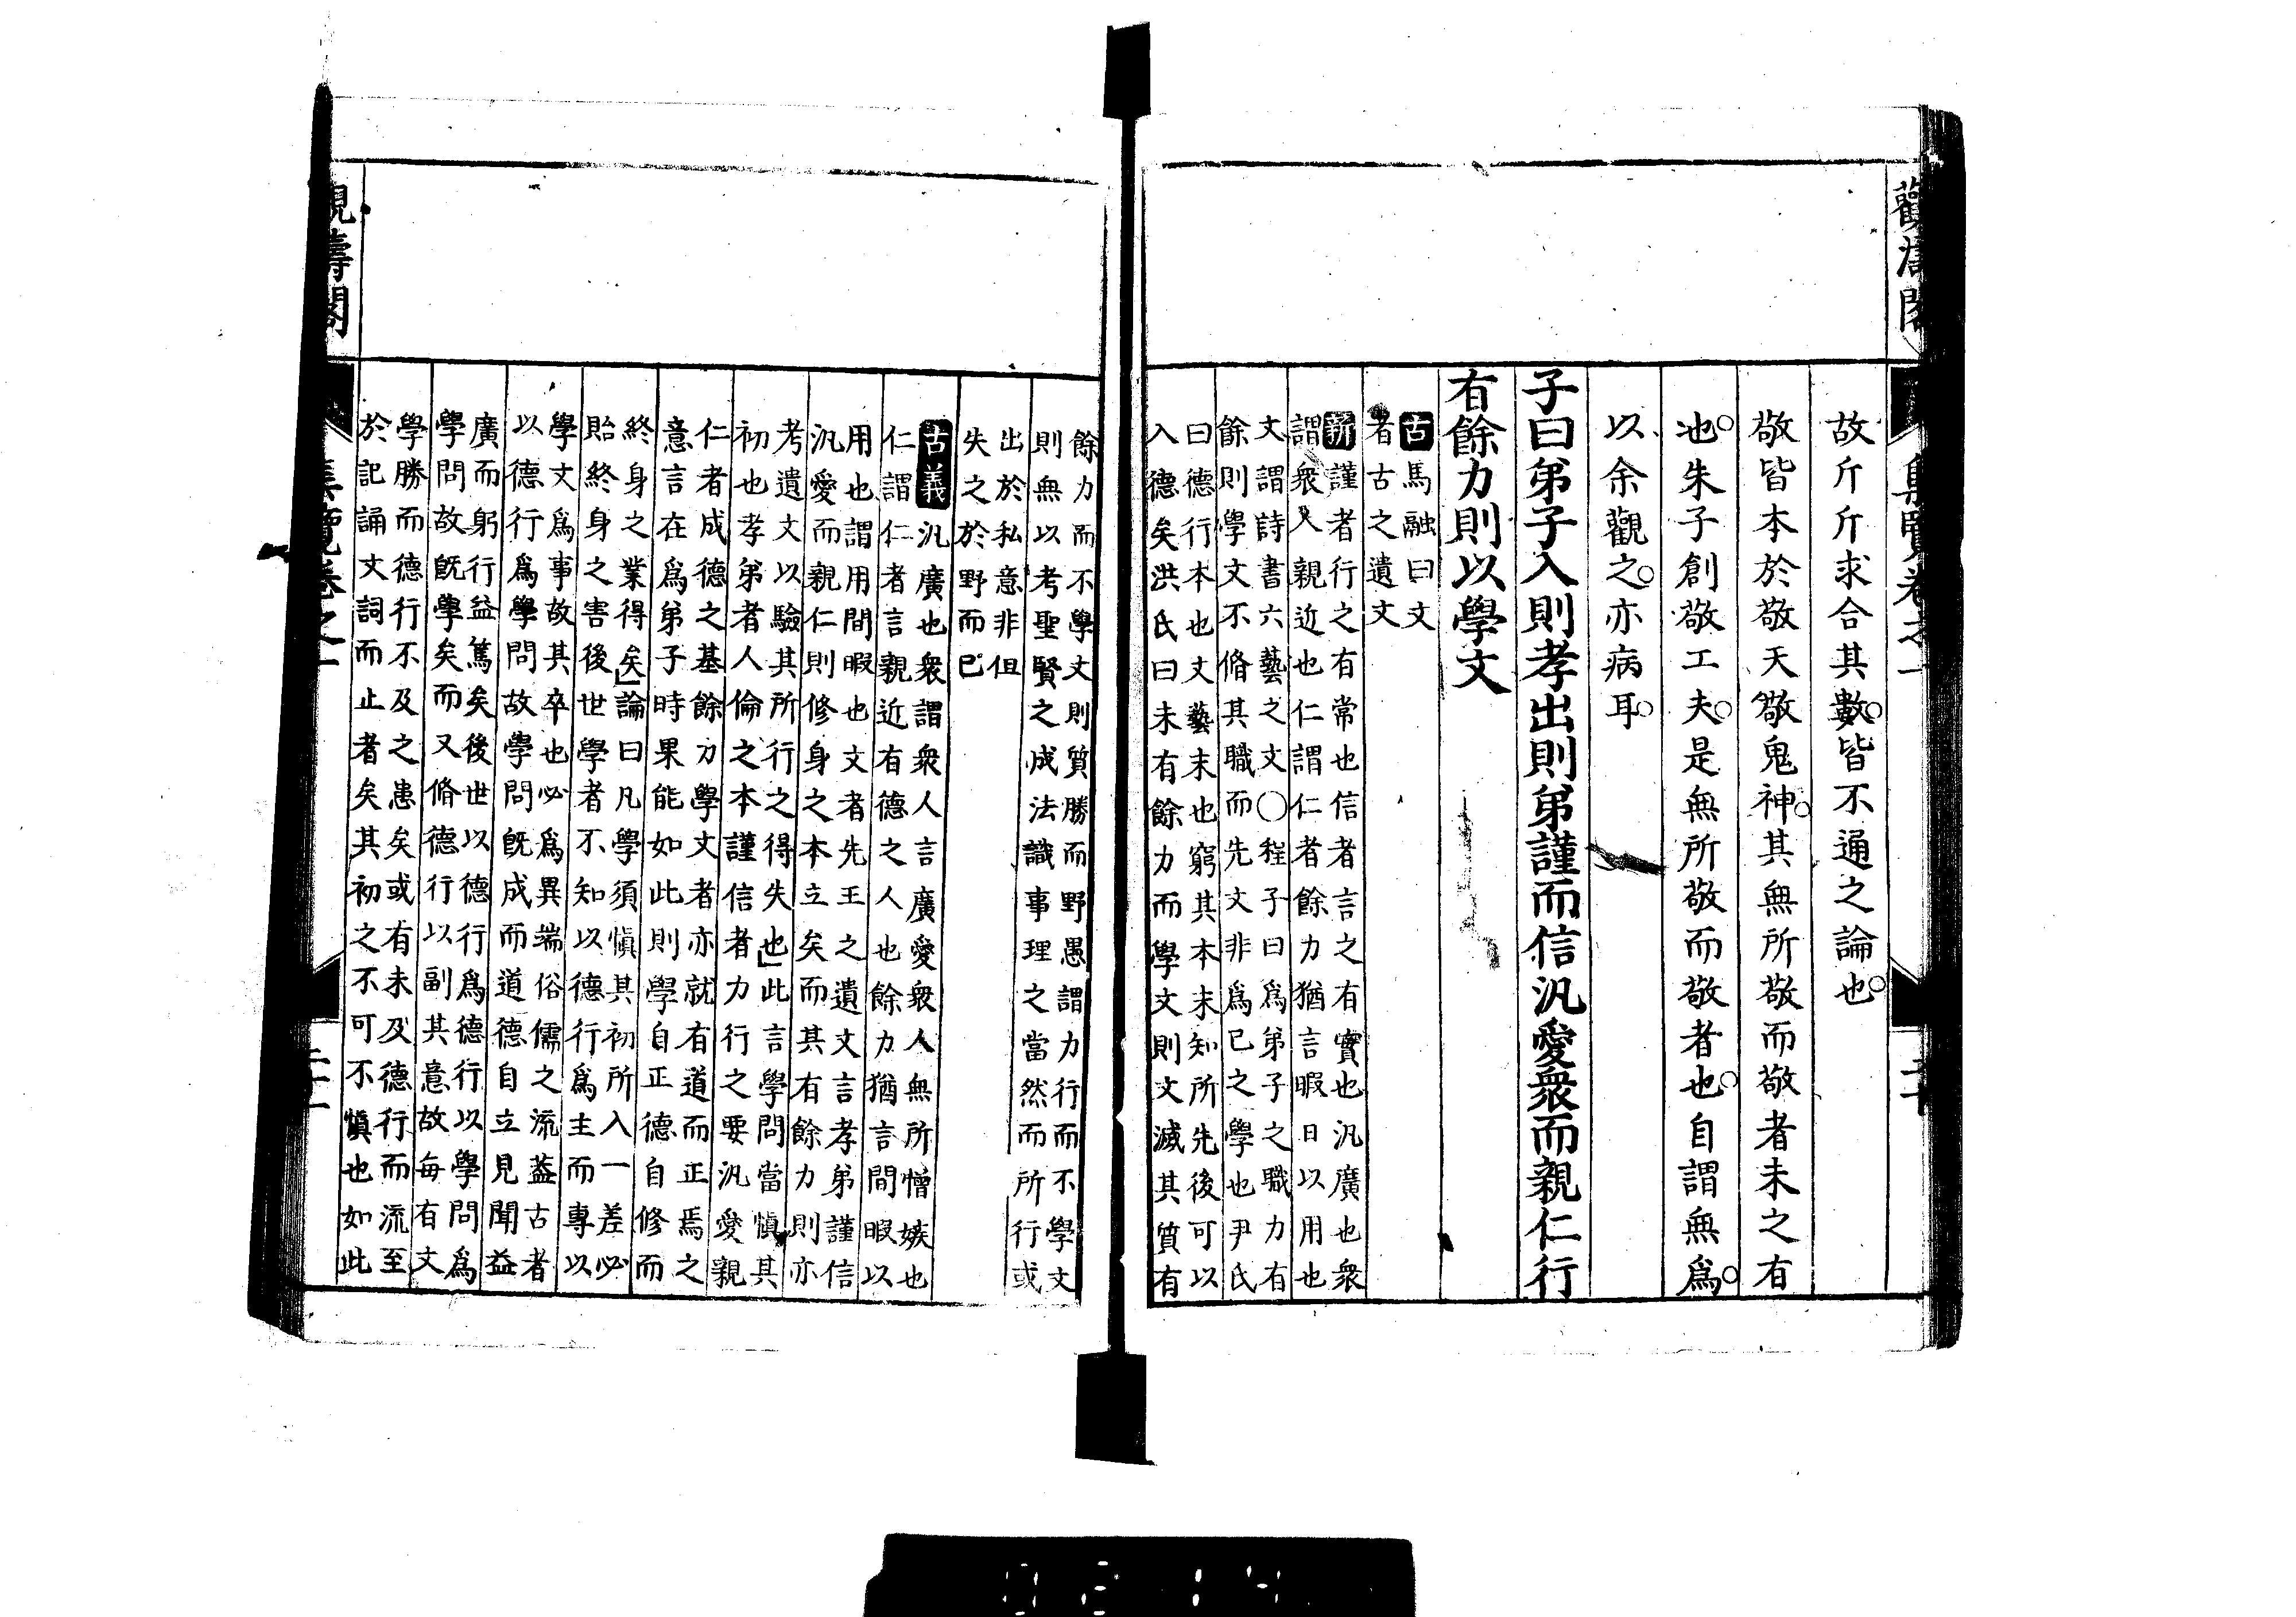 故斤斤求合其數皆不通之論也
敬皆本於敬天敬鬼神其無所敬而敬者未之有
也朱子創敬工夫是無所敬而敬者也自謂無爲
以余觀之亦病耳
子曰弟子入則孝出則弟謹而信汎愛衆而親仁行
有餘力則以學文
古馬融曰文
者古之遺文
新謹者行之有常也信者言之有實也汎廣也衆
謂衆人親近也仁謂仁者餘力猶言暇日以用也
文謂詩書六藝之文○程子曰爲弟子之職力有
餘則學文不脩其職而先文非爲己之學也尹氏
曰德行本也文藝末也窮其本末知所先後可以
入德矣洪氏曰未有餘力而學文則文滅其質有
餘力而不學文則質勝而野愚謂力行而不學文
則無以考聖賢之成法識事理之當然而所行或
出於私意非但
失之於野而已
古義汎廣也衆謂衆人言廣愛衆人無所憎嫉也
仁謂仁者言親近有德之人也餘力猶言間暇以
用也謂用間暇也文者先王之遺文言孝弟謹信
汎愛而親仁則修身之本立矣而其有餘力則亦
考遺文以驗其所行之得失也」此言學問當愼其
初也孝弟者人倫之本謹信者力行之要汎愛親
仁者成德之基餘力學文者亦就有道而正焉之
意言在爲弟子時果能如此則學自正德自修而
終身之業得矣」論曰凡學須愼其初所入一差必
貽終身之害後世學者不知以德行爲主而專以
學文爲事故其卒也必爲異端俗儒之流蓋古者
以德行爲學問故學問既成而道德自立見聞益
廣而躬行益篤矣後世以德行爲德行以學問爲
學問故既學矣而又脩德行以副其意故每有文
學勝而德行不及之患矣或有未及德行而流至
於記誦文詞而止者矣其初之不可不愼也如此
集覽卷之一
二十一